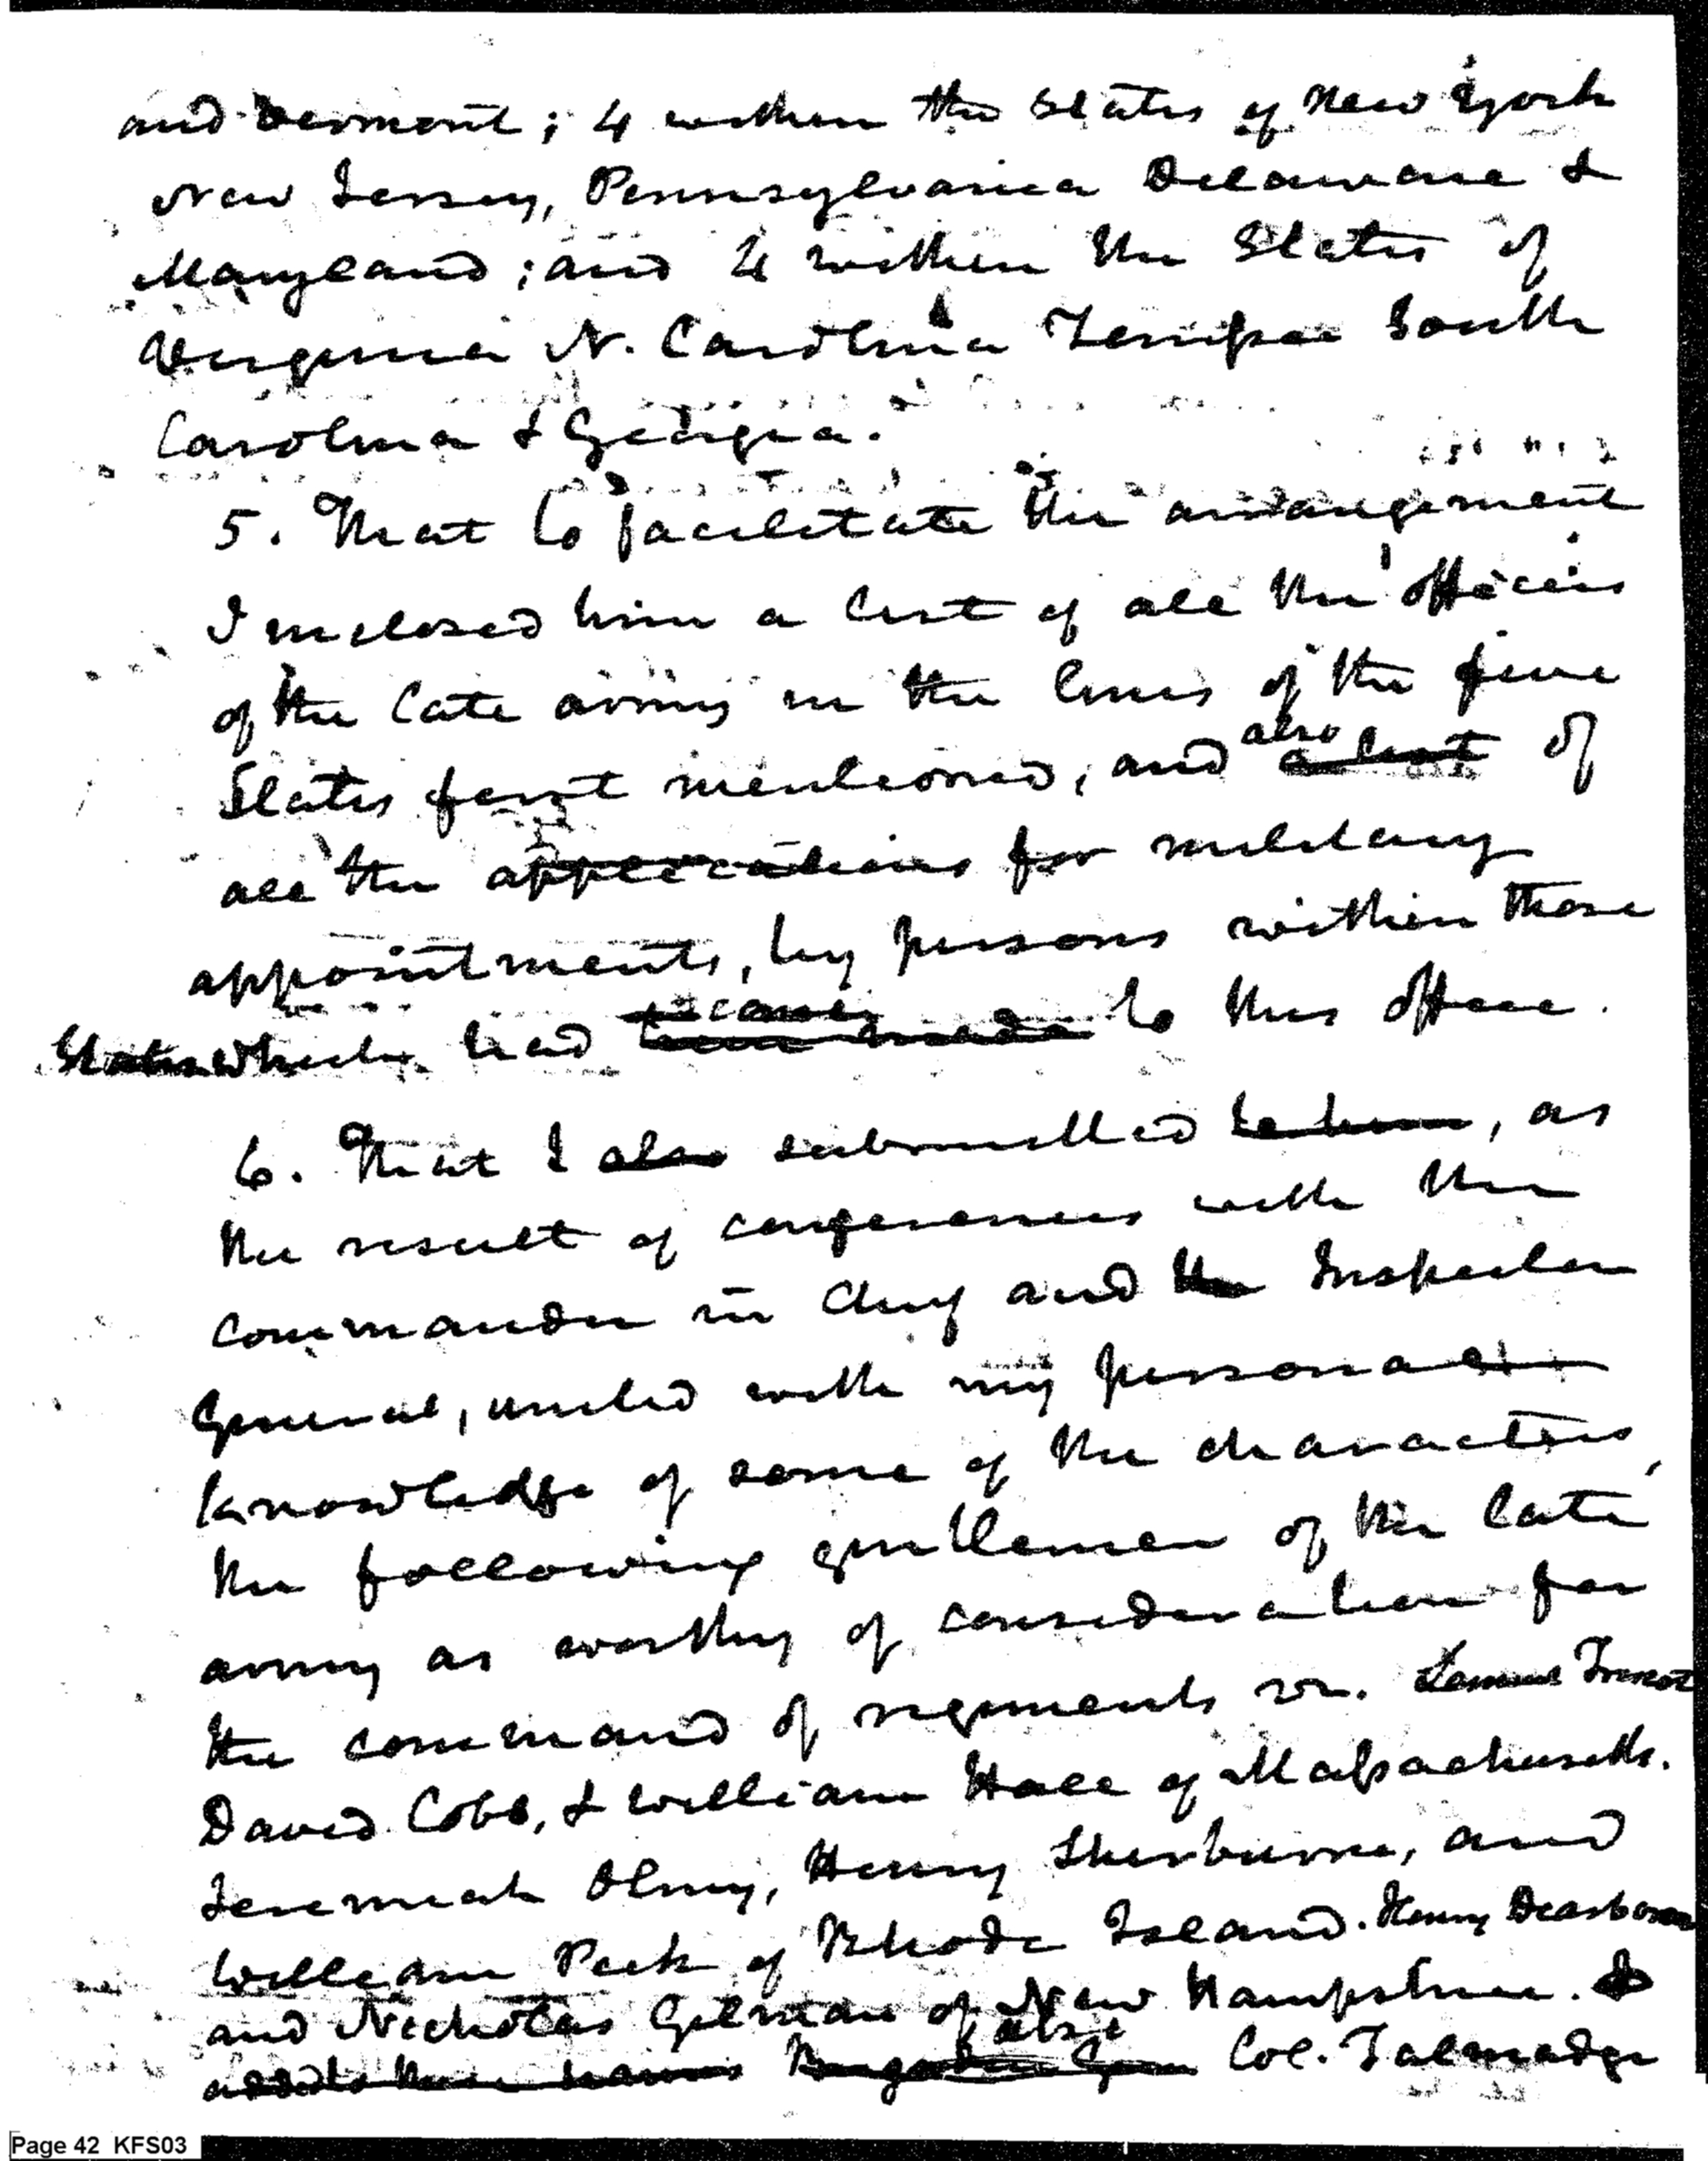 and Vermont; 4 within the States of New York
New Jersey, Pennsylvania Delaware &
Maryland; and 4 within the States of
Virginia N. Carolina Tennessee South
Carolina & Georgia.
5. That to facilitate the arrangement
I inclosed him a list of all the officers
of the late army in the lines of the five
States first mentioned, and also a list of
all the applications for military
appointments, by persons within those
States which had been made to this office.
6. That I also submitted to him, as
the result of conferences with the
commander in chief and the Inspector
General, united with my personal
knowledge of some of the characters,
the following gentlemen of the late
army as worthy of consideration for
the command of regiments viz. Lemuel Trescot
David Cobb, & William Hall of Massachusetts.
Jeremiah Olney, Henry Sherburne, and
William Peck of Rhode Island. Henry Dearborn
and Nicholas Gilman of New Hampshire. I
added to these names also Brigadier Gen Col. Talmadge
Page 42 KFS03